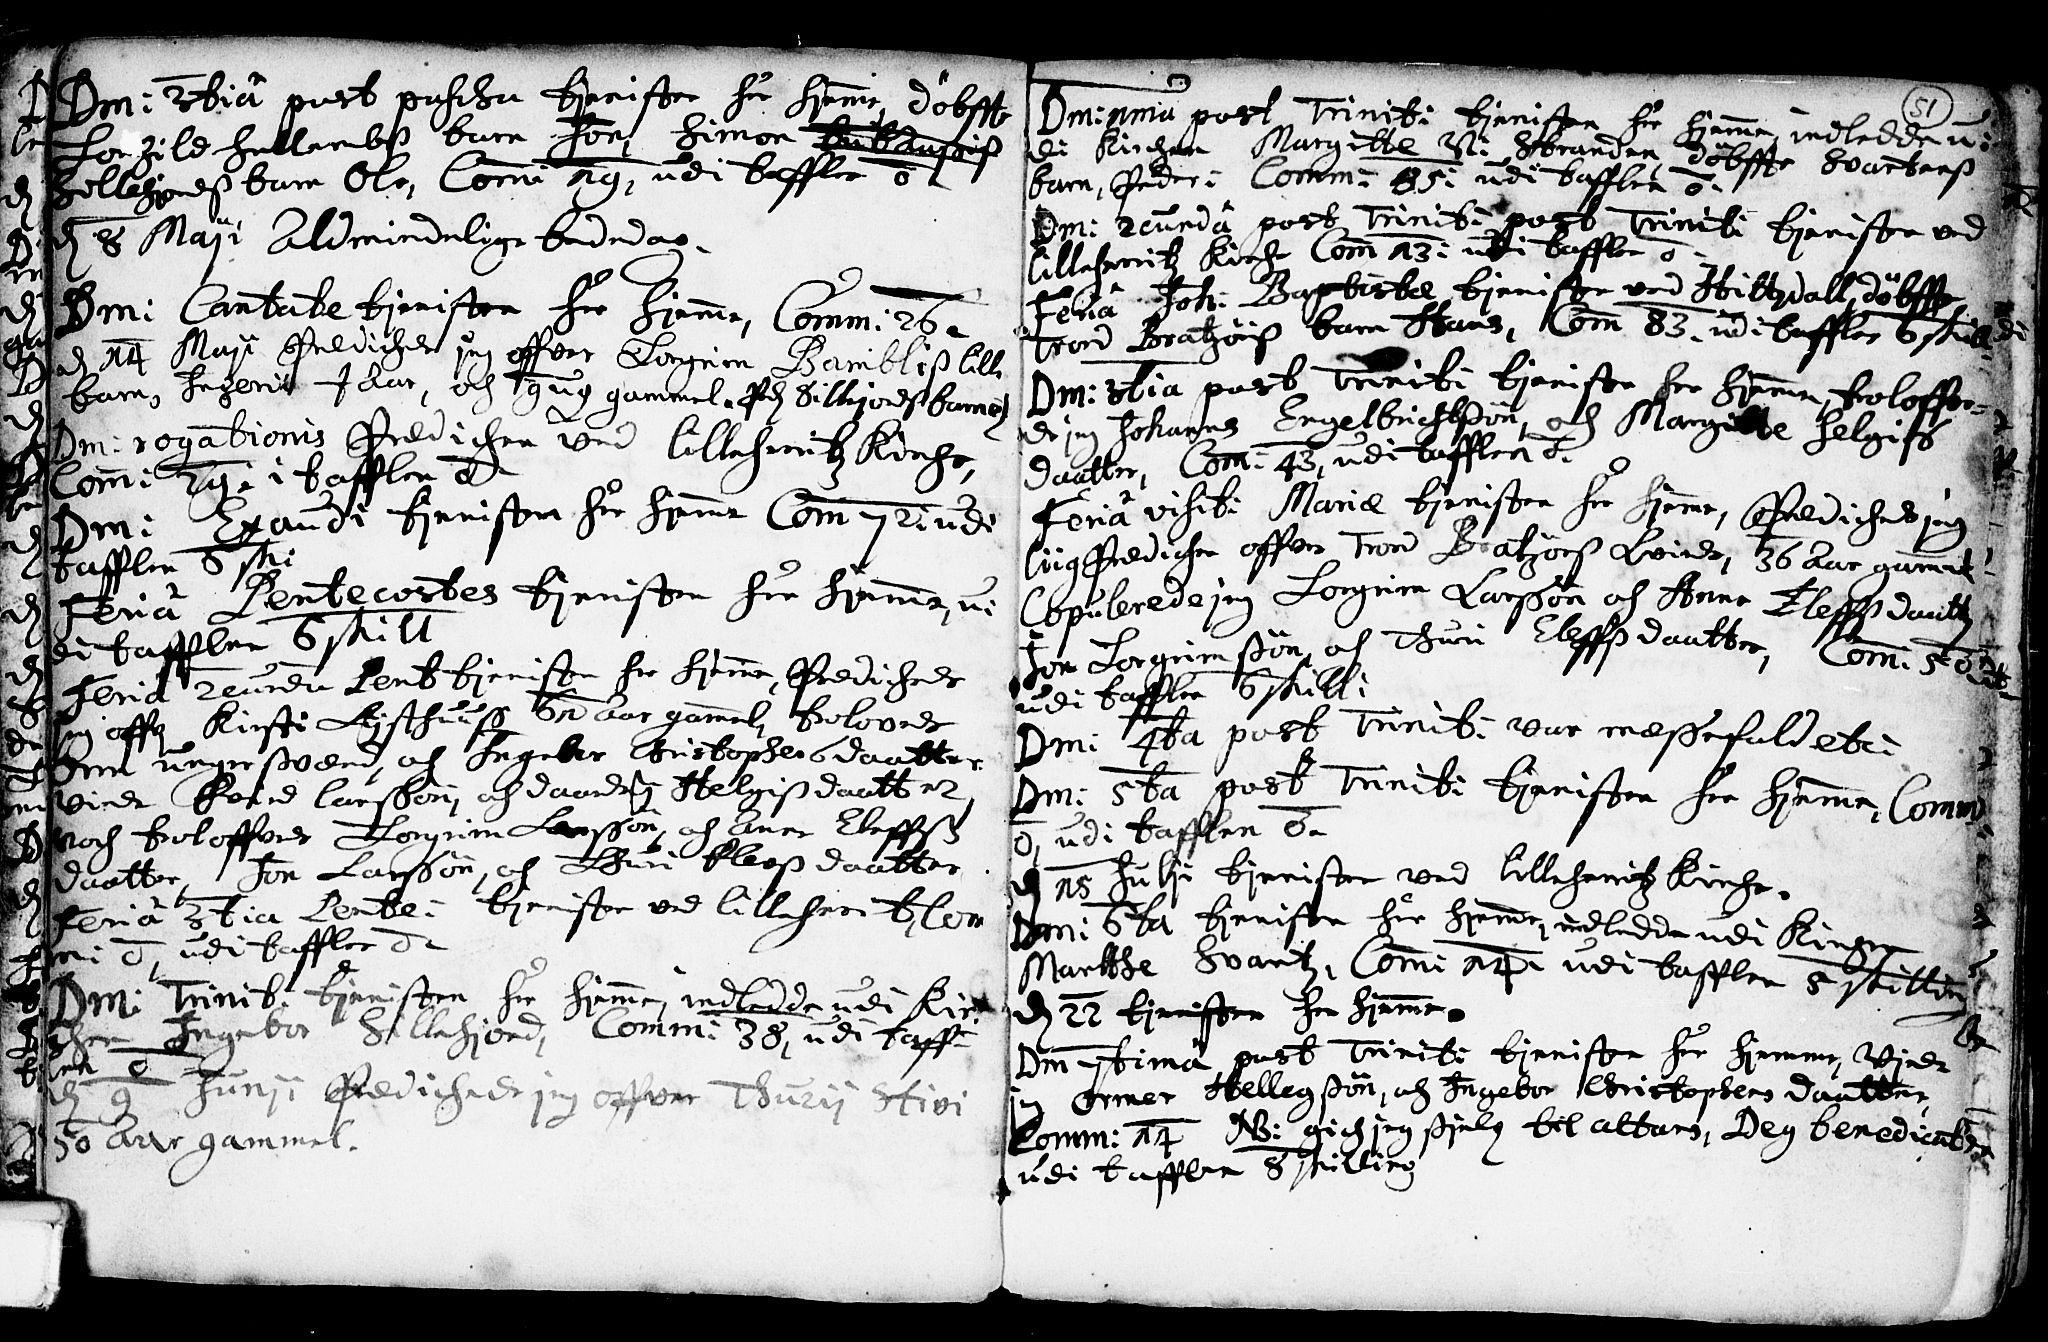 Dm: 3tiâ post pascha tienisten her hjemme, döbfte
Torgild barn Jon, Simon
Sillejords barn Ole, Comi 19, udi tafflen 0
d 8 Maji Aldmindelige bededag.
Dm: Cantate tienisten her hjemme, Commi: 26.
d 14 Maji Predichede jeg offver Torgrim Bambliß lille
barn, Ingerit 1 Aar, och gammel. Sillejords barn
Dm: rogationis Predichen ved lilleherritz Kirche,
Comi: 29: i tafflen 0
Dm: Exaudi tienisten her hjemme Com 72: udi
tafflen 8 ski
Feriâ Pentecostes tienisten her hjemme, u-
di tafflen 6 skill
Feria 2cunda Pent tienisten her hjemme, Predichede
jeg offr Kirsti 62 Aar gamel, trolovede
ungersvend, och Ingebor Christophersdaatter
viede larssön, och Helgisdaatter,
noch troloffvede Torgrim Larssön, och Anne Eleffß
daatter, Jon Larssön, och Thuri daatter
Feriâ 3tia Pente: tienisten ved lilleherritz Com
mi 0, udi tafflen 0
Dm: Trinit: tienisten her hjemme, indledde udi Kir-
chen Ingebor Sillehjord, Commi: 38, udi taff-
len 0
d 9 Junij Predichede jeg offver Thurij Stivi
50 Aar gammel.
51
Dm: 1mia post Triniti tienisten her hjemme, indledde u-
di Kirchen Margitte Döbfte Svartens
barn, Peder: Commi: 45: udi tafflen 0.
Dm: 2cundâ post Triniti post Triniti tienisten ved
lilleherritz Kirche Com 13: udi tafflen 0.
Feriâ Joh: Baptistæ tienisten ved Hittzdall, döbffte
Trond Bratzöns barn Hans, Com 83. udi tafflen 6 skill
Dm: 3tia post Triniti tienisten her hjemme, troloffve-
de jeg Johannes Engelbrichtßön, och Margitte Helgiß
daatter, Com: 43, udi tafflen 0.
Feriâ visiti Mariæ tienisten her hjemme, Predichede jeg
liigPredichen offver Trond Qvinde, 36 Aar gamel
Copulerede jeg Torgrim Larssön och Anne Eleffßdaatt
Jon Torgrimssön, och Thuri Eleffßdaatter, Com: 50
udi tafflen 6 skilli:
Dm: 4ta post Triniti var messefald etc:
Dm: 5ta post Triniti tienisten her hjemme, Comm
0, udi tafflen 0.
d 15 Julji tienisten ved lilleherritz Kirche.
Dm: 6ta tienisten her hjemme, indledde udi Kirchen
Marthe Svartz, Comi 14. udi tafflen 8 skilling
d 22 tienisten her hjemme.
Dm 7timâ post Triniti tienisten her hjemme, Viede
jeg Ormer Hellegßön, och Ingebor Christophers daatter,
Comm: 14 NB: gich jeg sielf til altars, Deg
udi tafflen 8 skilling